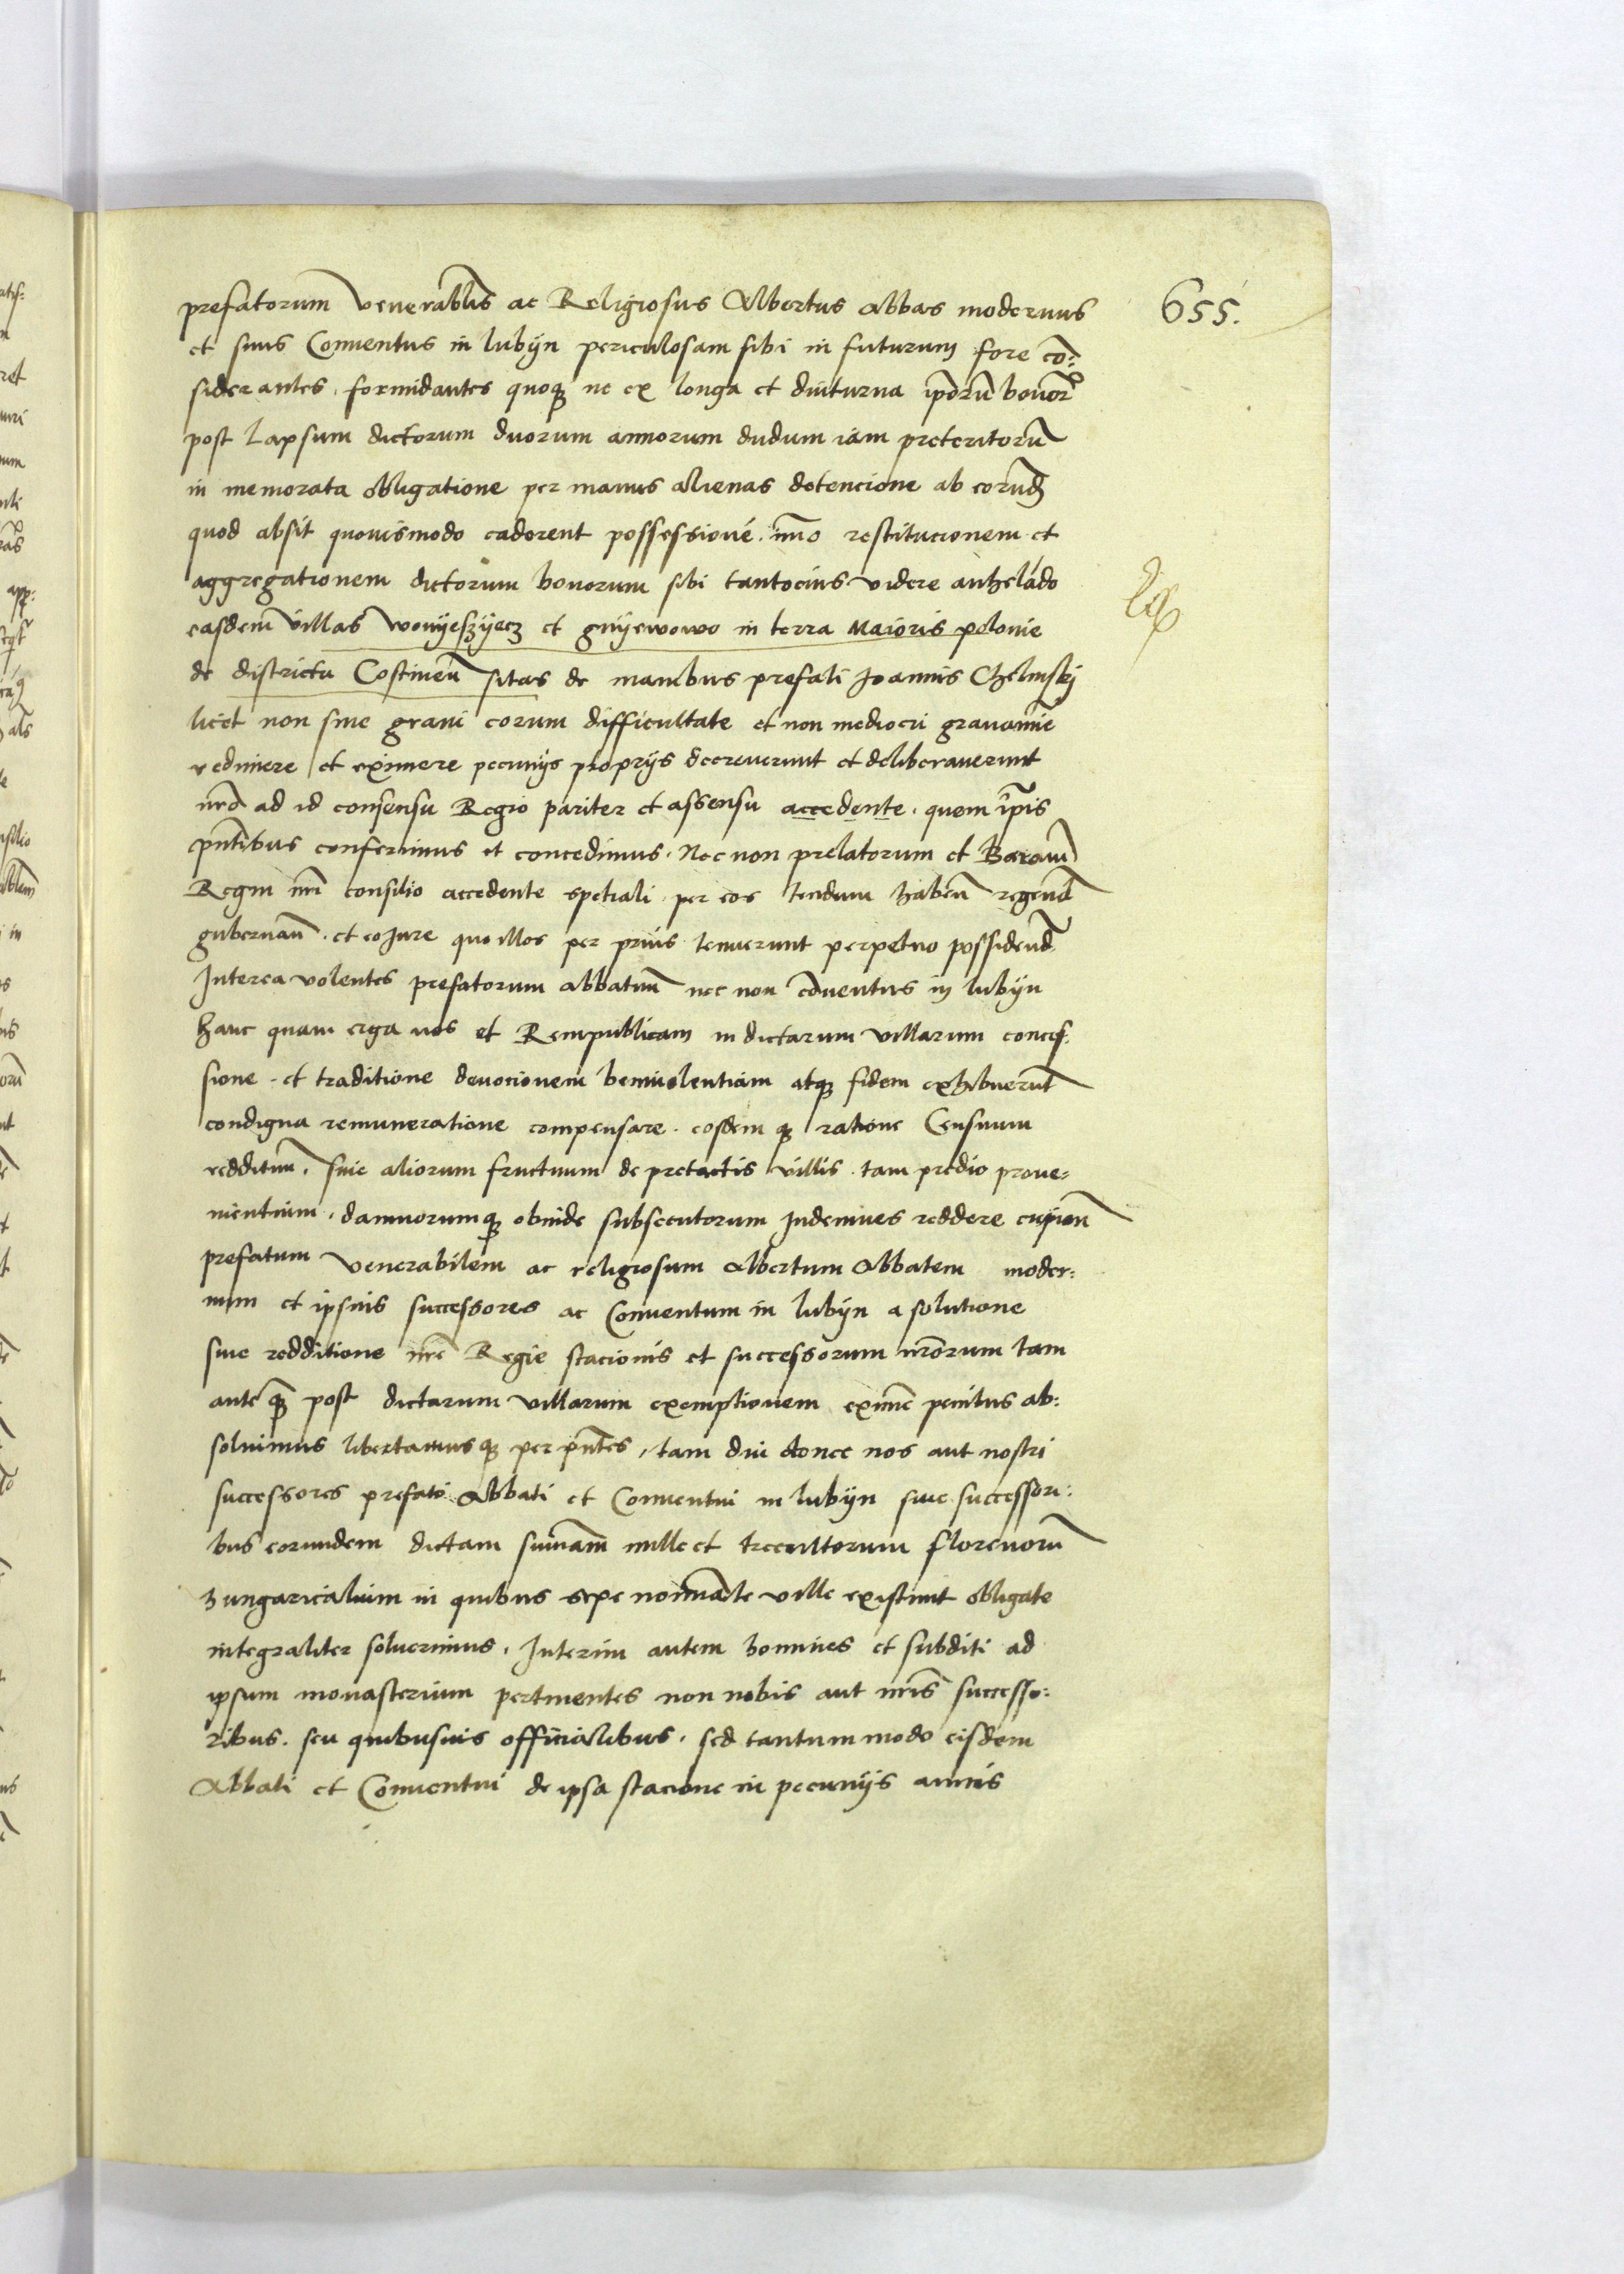 655.
prefatorum Venerabilis ac Religiosus Albertus Abbas modernus
et suus Conventus in lubyn periculosam sibi in futurum fore cō:
siderantes. formidantes quoq; ne ex longa et diuturna ip̄orū bonor
post Lapsum dictorum duorum annorum dudum iam preteritorū
in memorata obligatione per manus alienas detencione ab eorund
quod absit quovismodo caderent possessione. im̄o restitucionem et
aggregationem dictorum bonorum sibi tantocius videre anhelādo
easdem villas wonyeszyecz et gnyewowo in terra Maioris polonie
de districtu Costinen̄ sitas de manibus prefati Joannis Chelmskj
licet non sine gravi eorum difficultate et non mediocri gravamīe
redimere et eximere pecunijs proprijs decreverunt et deliberaverunt
nr̄o ad id consensu Regio pariter et assensu accedente. quem ip̄is
pn̄tibus conferimus et concedimus. Nec non prelatorum et Baronū
Regni nr̄i consilio accedente spetiali per eos tendum haben̄ regend̄
gubernan̄. et eo Jure quo illos per prius tenuerunt perpetuo possidend̄
Interea volentes prefatorum abbatum nec non cōventus in lubyn
hanc quam erga nos et Rempublicam in dictarum villarum conces:
sione. et traditione devocionem benivolentiam atq; fidem exhibuerūt
condigna remuneratione compensare. eosdem q; ratione Censuum
reddituum. sive aliorum fructuum de pretactis villis. tam predio prove=
nientium. damnorumq; obinde subsecutorum Indemnes reddere cupien̄
prefatum Venerabilem ac religiosum Albertum Abbatem moder:
num et ipsius successores ac Conventum in lubyn a solutione
sive redditione nr̄e Regie stacionis et successorum nr̄orum tam
ante q̄ post dictarum villarum exemptionem exim̄e penitus ab:
solvimus libertamus q; per pn̄tes, tam diu donec nos aut nostri
successores prefato Abbati et Conventui in lubyn sive successori:
bus eorundem dictam sum̄am mille et trecentorum florenorū
hungaricalium in quibus sepe nomīate ville existunt obligate
integraliter solverimus. Interim autem homines et subditi ad
ipsum monasterium pertinentes non nobis aut nr̄is successo:
ribus. seu quibusvis officialibus. sed tantummodo eisdem
Abbati et Conventui de ipsa stacione in pecunijs annis